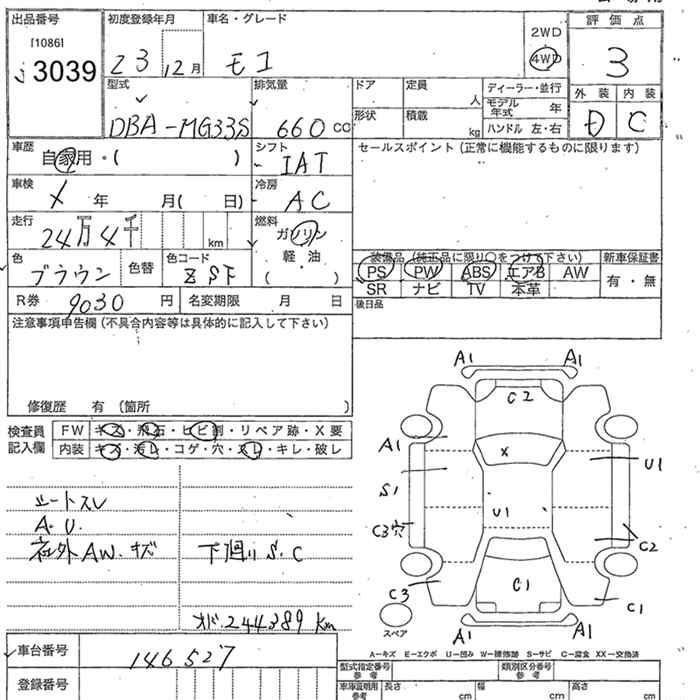 出品番号
[1086]
3039
初度登録年月
23 12月
車名・グレード
モコ
2WD
4WD
評価点
3
型式
DBA-MG33S
排気量
660 CC
ドア
定員
人
形状
積載
kg
ディーラー・並行
モデル年式 年
ハンドル 左・右
外装 内装
D C
車歴
自家用・( )
シフト
IAT
セールスポイント (正常に機能するものに限ります)
車検
X 年 月( 日)
冷房
AC
走行
24万4千 km
燃料
ガソリン
軽・油
( )
色
ブラウン
色替
色コード
ZSF
装備品 (純正品に限り○をつけて下さい)
PS PW ABS エアB AW
SR ナビ TV 本革
新車保証書
有・無
R券 9030 円
名変期限 月 日
後日品
注意事項申告欄 (不具合内容等は具体的に記入して下さい)
修復歴 有 (箇所 )
検査員
記入欄
FW キズ・飛石・ヒビ割・リペア跡・X要
内装 キズ・汚レ・コゲ・穴・スレ・キレ・破レ
シートスレ
A.U.
社外AW.キズ
下廻りS.C
オド.244389 Km
A1 A1
C2
A1
X
U1
S1
U1
C3穴
C2
C3
C1
C1
スペア
A1 A1
A-キズ E-エクボ U-凹み W-補修跡 S-サビ C-腐食 XX-交換済
車台番号
146527
登録番号
型式指定番号
参考
類別区分番号
参考
車庫証明用
参考
長さ cm
幅 cm
高さ cm